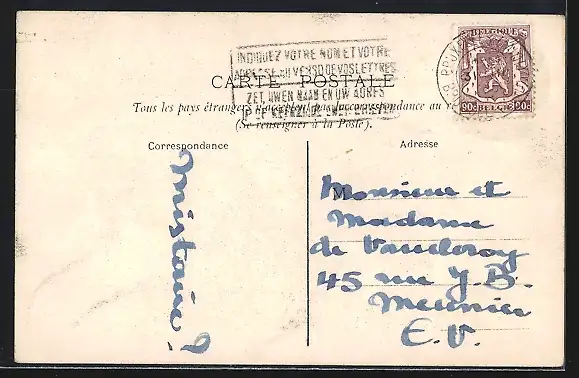 INDIQUEZ VOTRE NOM ET VOTRE
ADRESSE AU VERSO DE VOS LETTRES
CARTE POSTALE
ZET UWEN NAAM EN UW ADRES
OP DE KEERZIJDE UWER BRIEVEN
Tous les pays étrangers n'acceptent pas la correspondance au
(Se renseigner à la Poste).
BELGIQUE
90c BELGIE 90c
Correspondance
Adresse
Mystaire ?
Monsieur et
Madame
de Vauleroy
45 rue J. B.
Meunier
E. V.